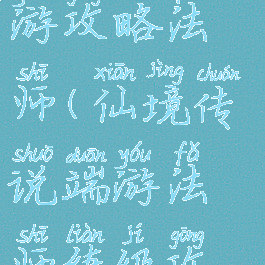 游攻略法
shī xiān jìng chuán
师(仙境传
shuō duān yóu fǎ
说端游法
shī liàn jí gōng
师练级攻